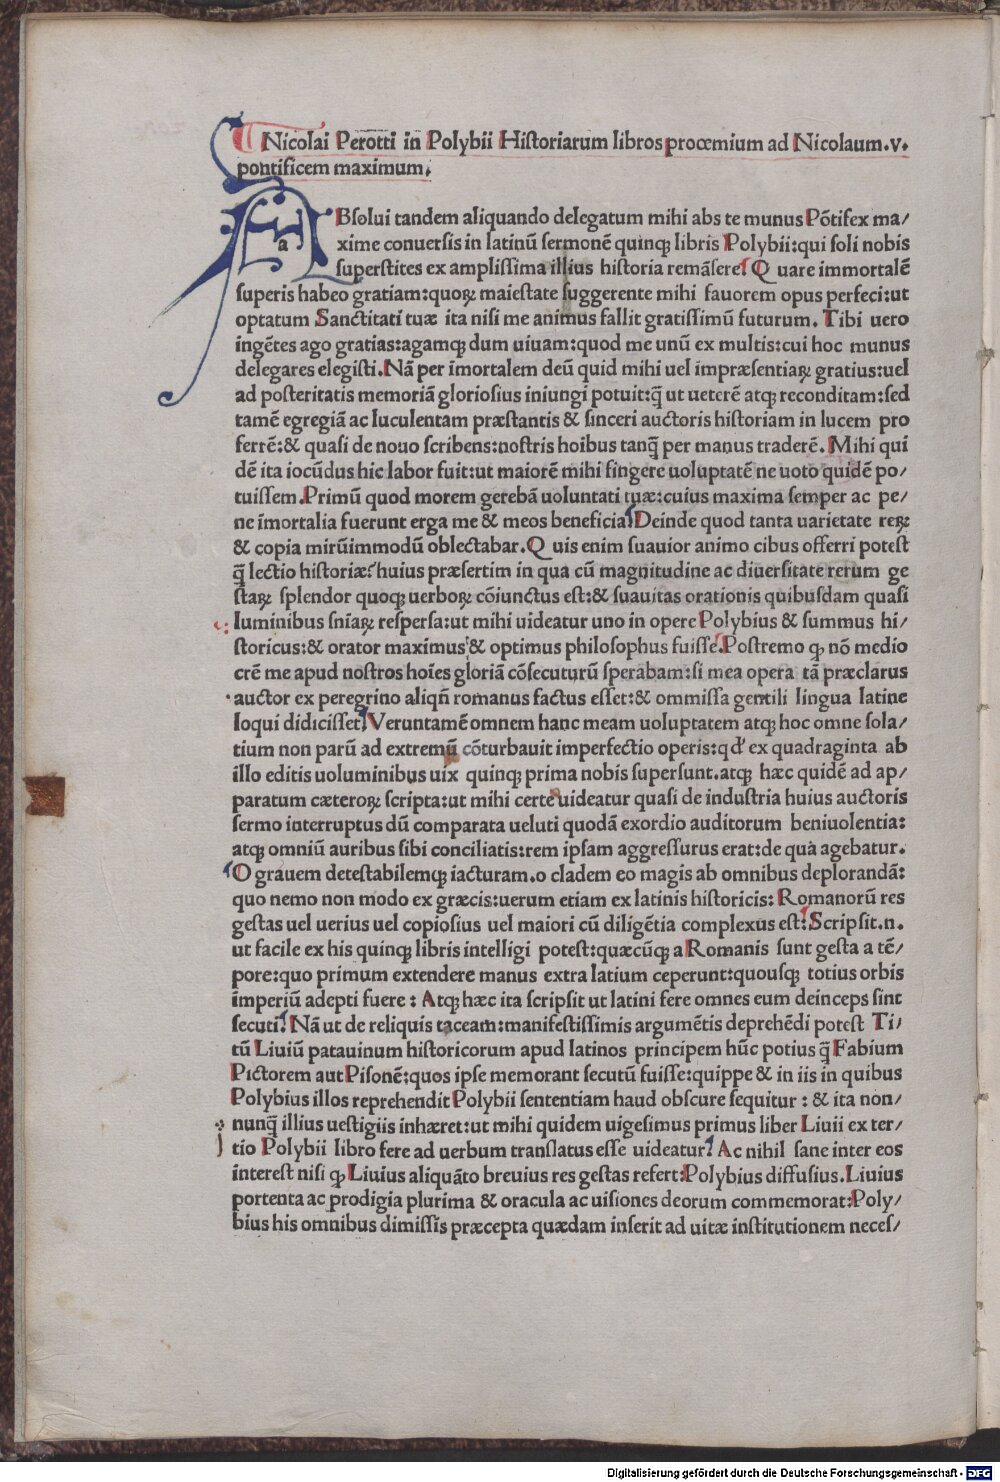 Nicolai Perotti in Polybii Historiarum libros prooemium ad Nicolaum.v.
pontificem maximum.
aBsolui tandem aliquando delegatum mihi abs te munus Põtifex ma/
xime conuersis in latinũ sermonẽ quinqꝫ libris Polybii:qui soli nobis
superstites ex amplissima illius historia remãsere. Quare immortalẽ
superis habeo gratiam:quoꝝ maiestate suggerente mihi fauorem opus perfeci:ut
optatum Sanctitati tuæ ita nisi me animus fallit gratissimũ futurum. Tibi uero
ingẽtes ago gratias:agamqꝫ dum uiuam:quod me unũ ex multis:cui hoc munus
delegares elegisti.Nã per ĩmortalem deũ quid mihi uel impræsentiaꝝ gratius:uel
ad posteritatis memoriã gloriosius iniungi potuit:q̃ ut ueterẽ atqꝫ reconditam:sed
tamẽ egregiã ac luculentam præstantis & sinceri auctoris historiam in lucem pro
ferrẽ:& quasi de nouo scribens:nostris hoibus tanq̃ per manus traderẽ. Mihi qui
dẽ ita iocũdus hic labor fuit:ut maiorẽ mihi fingere uoluptatẽ ne uoto quidẽ po/
tuissem.Primũ quod morem gerebã uoluntati tuæ:cuius maxima semper ac pe/
ne ĩmortalia fuerunt erga me & meos beneficia.Deinde quod tanta uarietate reꝝ
& copia mirũimmodũ oblectabar.Quis enim suauior animo cibus offerri potest
q̃ lectio historiæ?huius præsertim in qua cũ magnitudine ac diuersitate rerum ge
staꝝ splendor quoqꝫ uerboꝝ cõiunctus est:& suauitas orationis quibusdam quasi
luminibus sniaꝝ respersa:ut mihi uideatur uno in opere Polybius & summus hi/
storicus:& orator maximus:& optimus philosophus fuisse.Postremo ꝙ nõ medio
crẽ me apud nostros hoĩes gloriã cõsecuturũ sperabam:si mea opera tã præclarus
auctor ex peregrino aliqñ romanus factus esset:& ommissa gentili lingua latine
loqui didicisset.Veruntamẽ omnem hanc meam uoluptatem atqꝫ hoc omne sola/
tium non parũ ad extremũ cõturbauit imperfectio operis:qd' ex quadraginta ab
illo editis uoluminibus uix quinqꝫ prima nobis supersunt.atqꝫ hæc quidẽ ad ap/
paratum cæteroꝝ scripta:ut mihi certe uideatur quasi de industria huius auctoris
sermo interruptus dũ comparata ueluti quodã exordio auditorum beniuolentia:
atqꝫ omniũ auribus sibi conciliatis:rem ipsam aggressurus erat:de qua agebatur.
O grauem detestabilemqꝫ iacturam.o cladem eo magis ab omnibus deplorandã:
quo nemo non modo ex græcis:uerum etiam ex latinis historicis: Romanorũ res
gestas uel uerius uel copiosius uel maiori cũ diligẽtia complexus est:Scripsit.n.
ut facile ex his quinqꝫ libris intelligi potest:quæcũqꝫ a Romanis sunt gesta a tẽ/
pore:quo primum extendere manus extra latium ceperunt:quousqꝫ totius orbis
ĩmperiũ adepti fuere : Atqꝫ hæc ita scripsit ut latini fere omnes eum deinceps sint
secuti. Nã ut de reliquis taceam:manifestissimis argumẽtis deprehẽdi potest Ti/
tũ Liuiũ patauinum historicorum apud latinos principem hũc potius q̃ Fabium
Pictorem aut Pisonẽ:quos ipse memorant secutũ fuisse:quippe & in iis in quibus
Polybius illos reprehendit Polybii sententiam haud obscure sequitur : & ita non/
nunq̃ illius uestigiis inhæret:ut mihi quidem uigesimus primus liber Liuii ex ter/
tio Polybii libro fere ad uerbum translatus esse uideatur. Ac nihil sane inter eos
interest nisi ꝙ Liuius aliquãto breuius res gestas refert:Polybius diffusius.Liuius
portenta ac prodigia plurima & oracula ac uisiones deorum commemorat:Poly/
bius his omnibus dimissis præcepta quædam inserit ad uitæ institutionem neces/
Digitalisierung gefördert durch die Deutsche Forschungsgemeinschaft - DFG